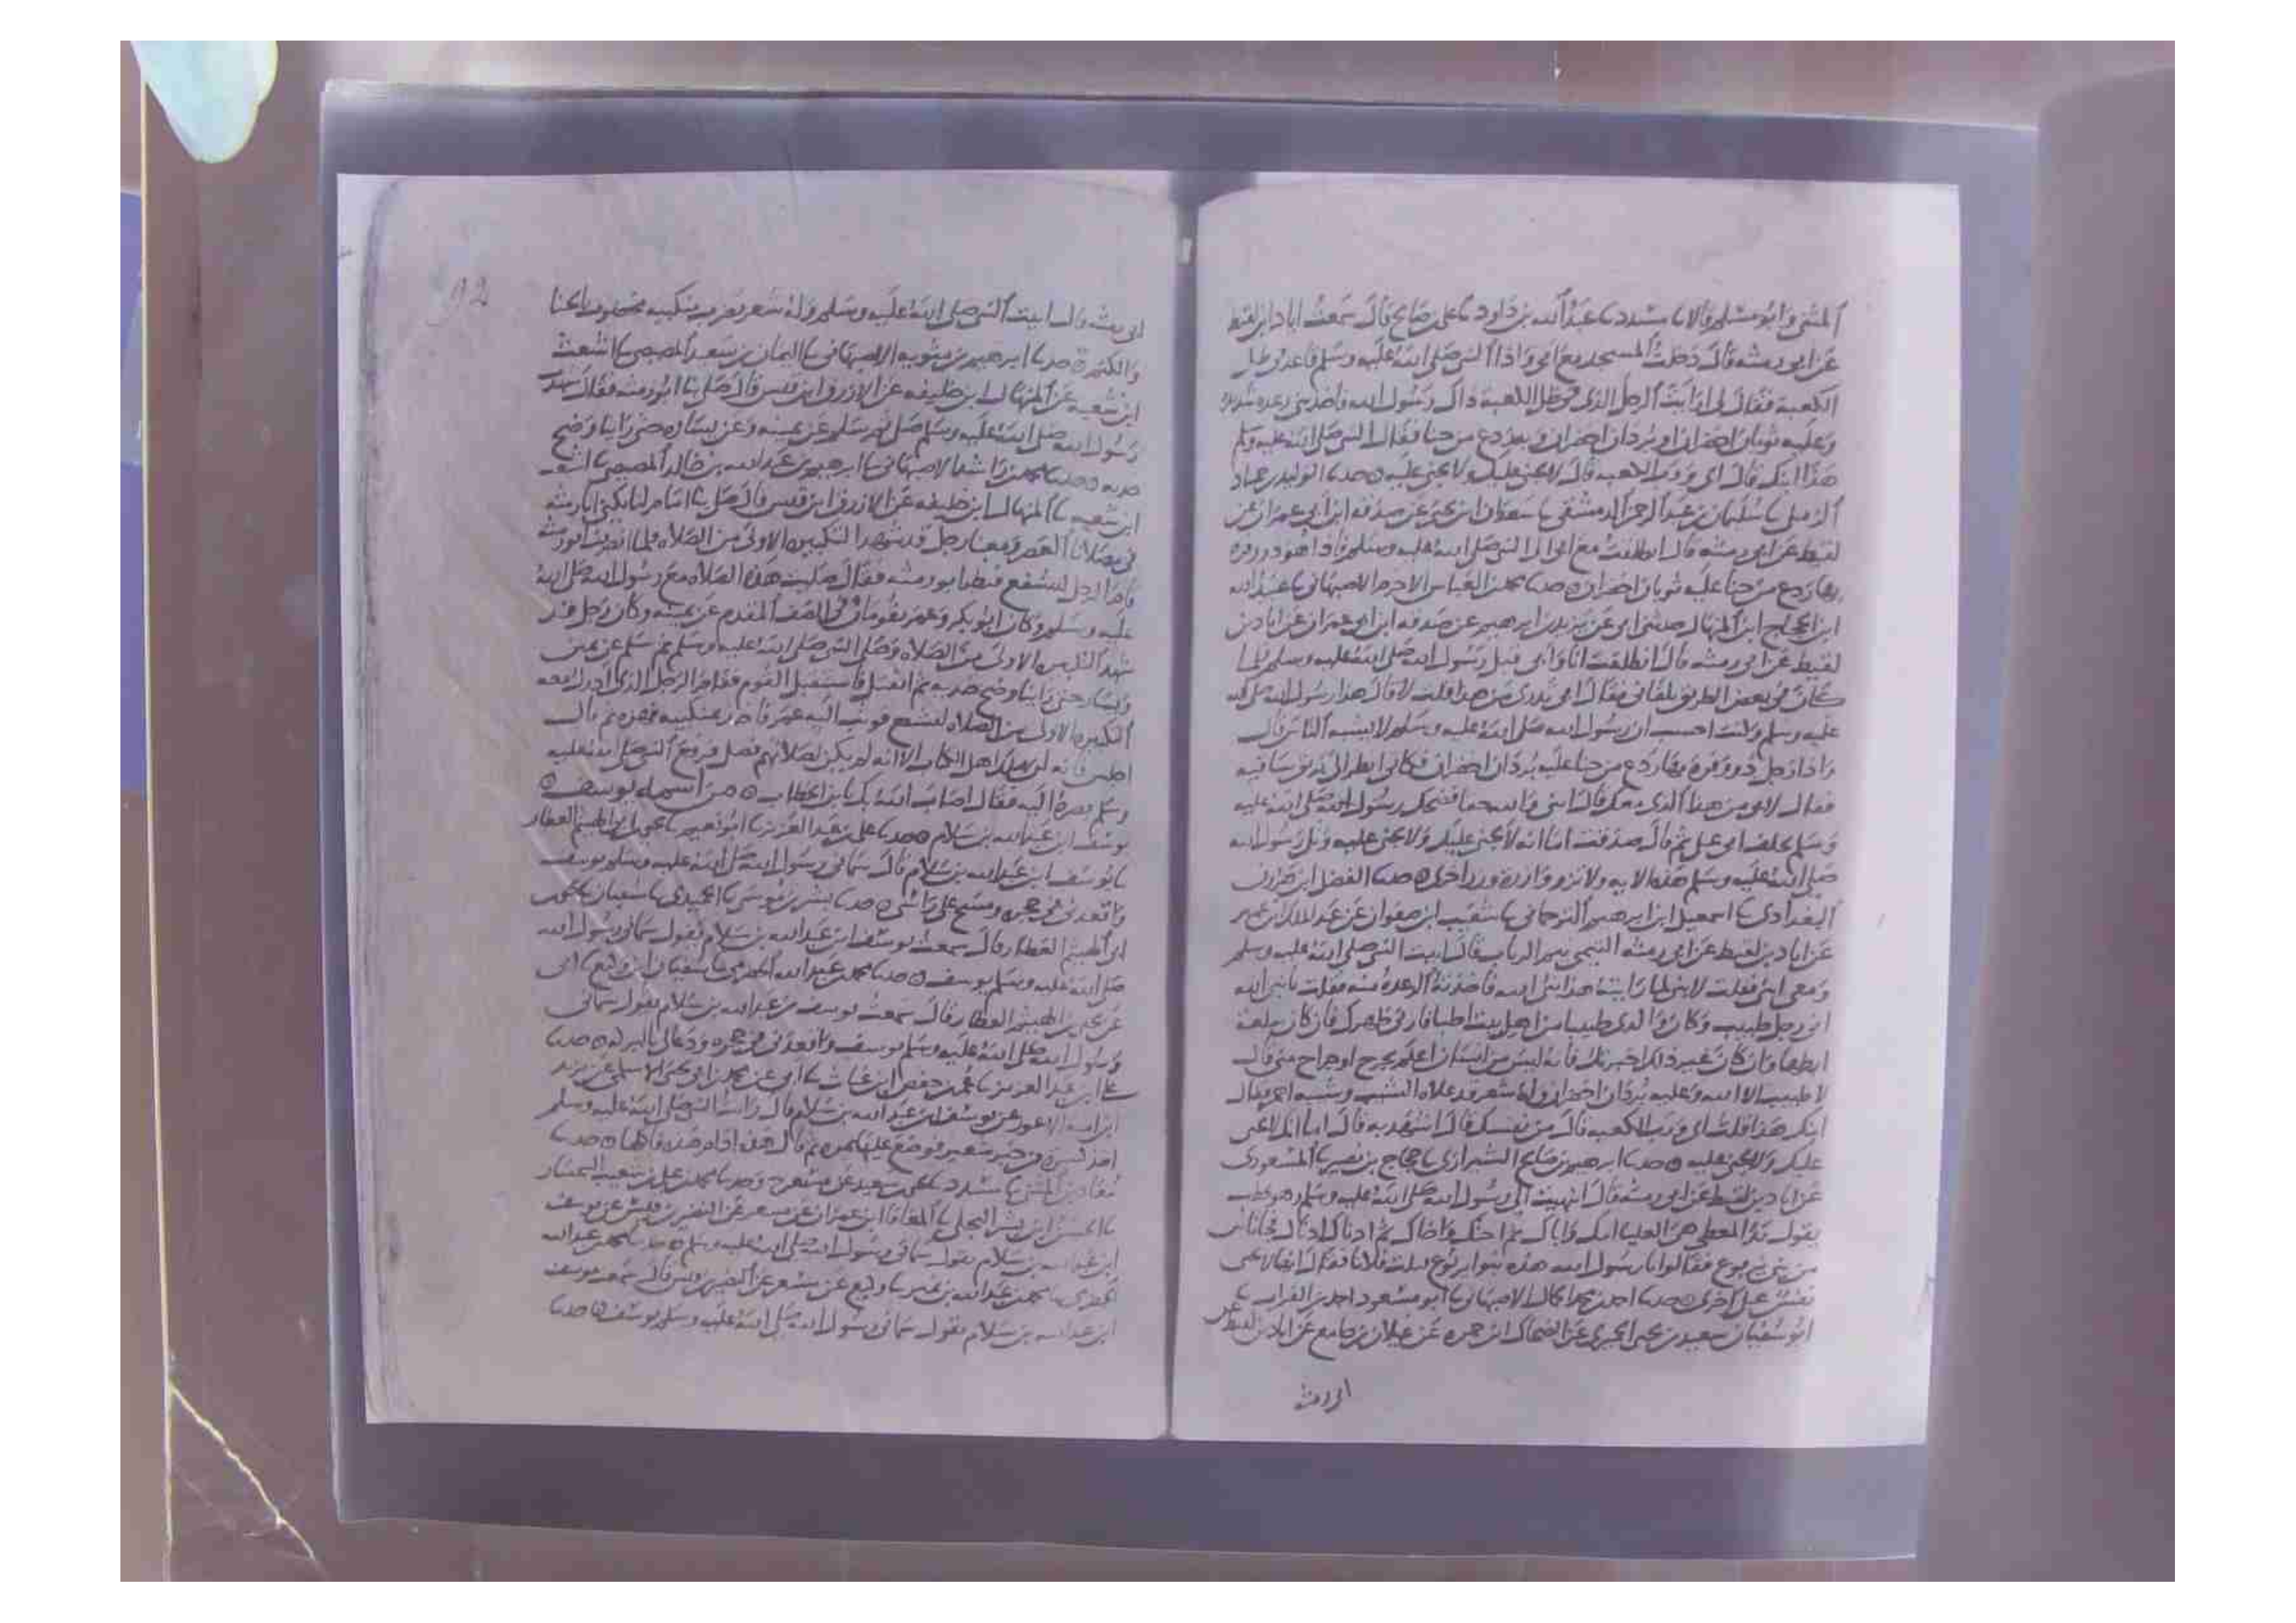 المثنى وابو مسلم قالا نا مسدد نا عبد الله بن داود نا على بن صالح قال سمعت اياد ابن لقيط
عن ابو رمثه قال دخلت المسجد مع ابى واذا النبى صلى الله عليه وسلم قاعد فى ظل
الكعبة فقال لى ارايت الرجل الذى فى ظل الكعبة ذاك رسول الله فاخذتنى رعده شديده
وعليه ثوبان اخضران او بردان اخضران وبه ردع من حنا فقال النبى صلى الله عليه وسلم
هذا ابنك قال اى ورب الكعبه قال لا يجنى عليك ولا تجنى عليه حدثنا الوليد بن حماد
الرملى نا سليمان بن عبد الرحمن الدمشقى نا سعدان ابن يحيى عن صدقه ابن ابى عمران عن
لقيط عن ابى رمثه قال انطلقت مع ابى الى النبى صلى الله عليه وسلم فاذا هو ذو وفره
بها ردع من حنا عليه ثوبان اخضران حدثنا محمد بن العباس الاخرم الاصبهانى نا عبد الله
ابن الحجاج ابن المنهال حدثنى ابى عن يزيد بن ابراهيم عن صدقه ابن ابى عمران عن اياد بن
لقيط عن ابى رمثه قال انطلقت انا وابى قبل رسول الله صلى الله عليه وسلم فلما
كان فى بعض الطريق تلقانى فقال ابى تدرى من هذا قلت لا قال هذا رسول الله صلى الله
عليه وسلم وكنت احسب ان رسول الله صلى الله عليه وسلم لا يشبه الناس قال
واذا رجل ذو وفره بها ردع من حنا عليه بردان اخضران فكانى انظر الى بريق ساقيه
فقال لابى من هذا الذى معك قال ابنى والله حقا فضحك رسول الله صلى الله عليه
وسلم لحلف ابى على ثم قال صدقت اما انه لا يجنى عليك ولا تجنى عليه وتلى رسول الله
صلى الله عليه وسلم هذه الايه ولا تزر وازرة وزر اخرى حدثنا الفضل ابن هرون
البغدادى نا اسمعيل ابن ابرهيم الترجمانى نا شعيب ابن صفوان عن عبد الملك بن عمير
عن اياد بن لقيط عن ابى رمثه التيمى تيم الرباب قال اتيت النبى صلى الله عليه وسلم
ومعى ابنى فقلت لابنى لما رايته هذا نبى الله فاخذته الرعده فقلت يا نبى الله
انى رجل طبيب وكان والدى طبيبا من اهل بيت اطبا فارنى ظهرك فان كان سلعة
ابطها وان كان غير ذلك اخبرتك فانه ليس من انسان اعلم بجرح او خراج منى قال
لا طبيب الا الله وعليه بردان اخضران وله شعر قد علاه الشيب وشيبه احمر فقال
ابنك هذا قلت اى ورب الكعبه قال من نفسك قال اشهد به قال اما انه لا يجنى
عليك ولا تجنى عليه حدثنا ابرهيم بن صالح الشيرازى نا حجاج بن نصير نا المسعودى
عن اياد بن لقيط عن ابى رمثه قال انتهيت الى رسول الله صلى الله عليه وسلم وهو يخطب
يقول يد المعطى هى العليا امك واباك ثم اختك واخاك ثم ادناك ادناك فجا ناس
من بنى يربوع فقالوا يا رسول الله هذه بنوا يربوع قتلت فلانا فقال الا لا تجنى
نفس على اخرى حدثنا احمد بن محمد الاصبهانى نا ابو مسعود احمد بن الفرات نا
ابو سفيان سعيد بن يحيى الحميرى عن الضحاك ابن حمره عن غيلان بن جامع عن اياد بن لقيط عن
ابى رمثه
92
ابى رمثه قال اتيت النبى صلى الله عليه وسلم وله شعر يضرب منكبيه مخضوب بالحنا
والكتم حدثنا ابرهيم بن متويه الاصبهانى نا اليمان بن سعيد المصيصى نا اشعث
ابن شعبه عن المنهال ابن خليفه عن الازرق ابن قيس قال صلى بنا ابو رمثه فقال شهدت
رسول الله صلى الله عليه وسلم صلى ثم سلم عن يمينه وعن يساره حتى راينا وضح
خديه حدثنا محمد بن الاصبهانى نا ابرهيم بن عبد الله بن خالد المصيصى نا اشعث
ابن شعبه نا المنهال ابن خليفه عن الازرق ابن قيس قال صلى بنا امام لنا يكنى ابا رمثه
فى صلاة العصر ومعنا رجل قد شهد التكبيره الاولى من الصلاه فلما انصرف ابو رمثه
قام الرجل ليشفع ابو رمثه فقال صليت هذه الصلاه مع رسول الله صلى الله
عليه وسلم وكان ابو بكر وعمر يقومان فى الصف المقدم عن يمينه وكان رجل قد
شهد التكبيره الاولى من الصلاه وصلى النبى صلى الله عليه وسلم ثم سلم عن يمين
ويسار حتى راينا وضح خديه ثم انفتل فاستقبل القوم فقام الرجل الذى ادرك معه
التكبيره الاولى من الصلاه ليشفع فوثب اليه عمر فاخذ بمنكبيه فهزه ثم قال
اجلس فانه لم يهلك اهل الكتاب الا انه لم يكن لصلاتهم فصل فرفع النبى صلى الله عليه
وسلم بصره اليه فقال اصاب الله بك يا ابن الخطاب من اسمه يوسف
يوسف ابن عبد الله بن سلام حدثنا على بن عبد العزيز نا ابو نعيم نا يحيى ابن ابى الهيثم العطار
نا يوسف ابن عبد الله بن سلام قال سمانى رسول الله صلى الله عليه وسلم يوسف
واقعدنى فى حجره ومسح على راسى حدثنا بشر بن موسى نا الحميدى نا سفيان نا يحيى
ابن ابى الهيثم العطار قال سمعت يوسف ابن عبد الله بن سلام يقول سمانى رسول الله
صلى الله عليه وسلم يوسف حدثنا محمد بن عبد الله الحضرمى نا سفيان ابن وكيع نا ابى
عن يحيى بن ابى الهيثم العطار قال سمعت يوسف بن عبد الله بن سلام يقول سمانى
رسول الله صلى الله عليه وسلم يوسف واقعدنى فى حجره ودعا لى بالبركه حدثنا
على ابن عبد العزيز نا عمر بن حفص ابن غياث نا ابى عن محمد بن ابى يحيى الاسلمى عن يزيد
ابن ابى اميه الاعور عن يوسف ابن عبد الله بن سلام قال رايت النبى صلى الله عليه وسلم
اخذ كسره من خبز شعير فوضع عليها تمره ثم قال هذه ادام هذه فاكلها حدثنا
معاذ بن المثنى نا مسدد نا يحيى بن سعيد عن مسعر ح وحدثنا محمد بن على بن شعيب السمسار
نا الحسن ابن بشر البجلى نا المعافا ابن عمران عن مسعر عن النضر بن قيس عن يوسف
ابن عبد الله بن سلام يقول سمانى رسول الله صلى الله عليه وسلم حدثنا محمد بن عبد الله
الحضرمى نا محمد بن عبد الله بن نمير نا وكيع عن مسعر عن النضر بن قيس قال سمعت يوسف
ابن عبد الله بن سلام يقول سمانى رسول الله صلى الله عليه وسلم يوسف حدثنا